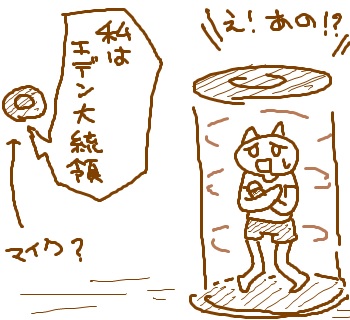 私は
エデン大統領
え!あの!?
マイク?